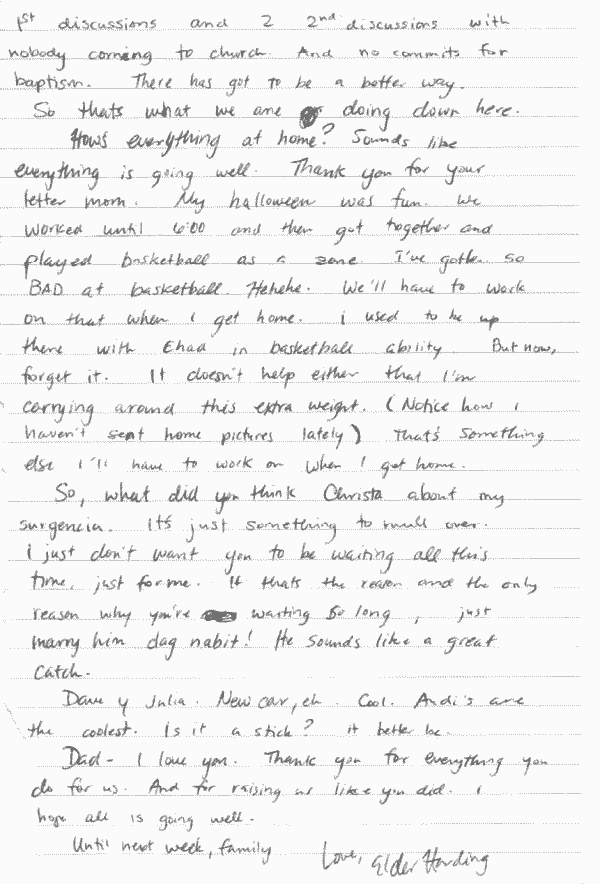 1st discussions and 2 2nd discussions with
nobody coming to church. And no commits for
baptism. There has got to be a better way.
So thats what we are doing down here.
Hows everything at home? Sounds like
everything is going well. Thank you for your
letter mom. My halloween was fun. We
worked until 6:00 and then got together and
played basketball as a zone. I've gotten so
BAD at basketball. Hehehe. We'll have to work
on that when I get home. i used to be up
there with Chad in basketball ability. But now,
forget it. It doesn't help either that I'm
carrying around this extra weight. (Notice how i
haven't sent home pictures lately) That's something
else I'll have to work on when I get home.
So, what did you think Christa about my
surgencia. It's just something to mull over.
i just don't want you to be waiting all this
time, just for me. If thats the reason and the only
reason why you're waiting so long, just
marry him dag nabit! He sounds like a great
catch.
Dave y Julia. New car, eh. Cool. Audi's are
the coolest. Is it a stick? it better be.
Dad- I love you. Thank you for everything you
do for us. And for raising us like you did. i
hope all is going well.
Until next week, family
Love, Elder Harding